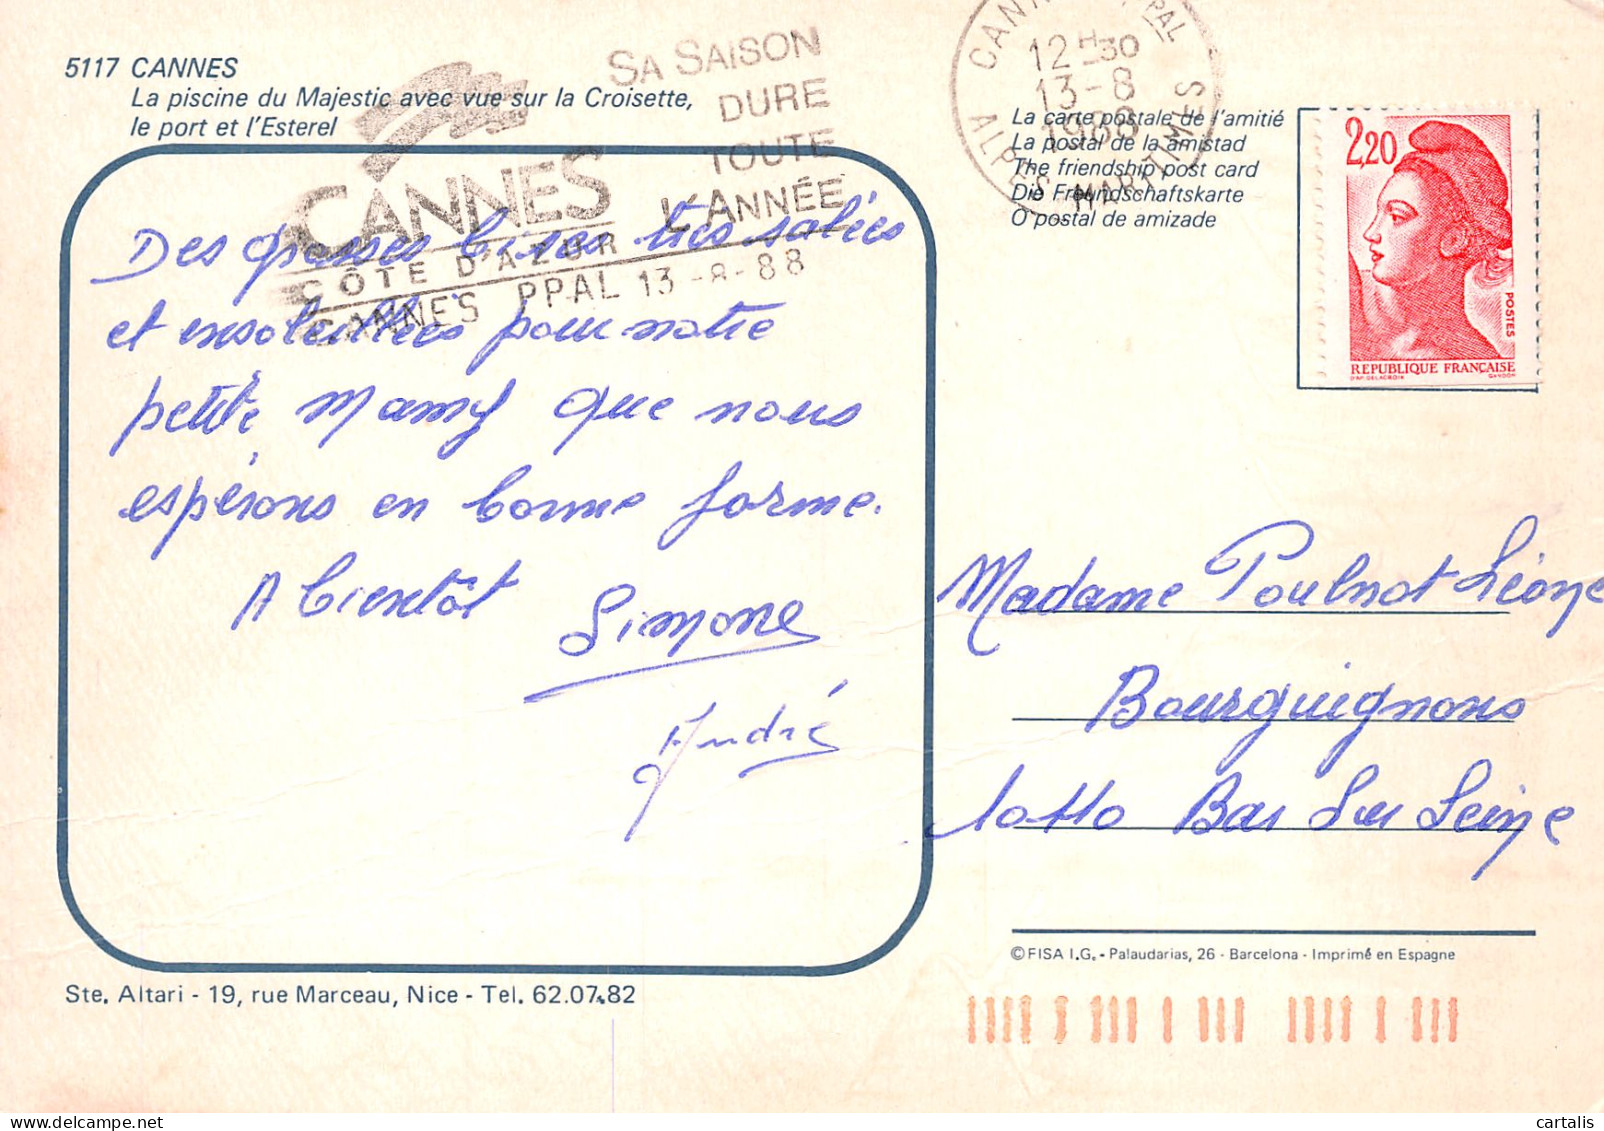 5117 CANNES
La piscine du Majestic avec vue sur la Croisette,
le port et l'Esterel
SA SAISON
DURE
TOUTE
L'ANNÉE
CANNES
CÔTE D'AZUR
CANNES PPAL 13-8-88
CANNES PPAL
12H30
13-8
1988
ALPES MARITIMES
La carte postale de l'amitié
La postal de la amistad
The friendship post card
Die Freundschaftskarte
O postal de amizade
2,20
POSTES
REPUBLIQUE FRANÇAISE
D'AP. DELACROIX GANDON
Des grosses bises très salées
et ensoleillées pour notre
petite Mamy que nous
espérons en bonne forme.
A bientôt
Simone
André
Madame Poulnot Léone
Bourguignons
10110 Bar Sur Seine
©FISA I.G. - Palaudarias, 26 - Barcelona - Imprimé en Espagne
Ste. Altari - 19, rue Marceau, Nice - Tel. 62.07.82
cartalis